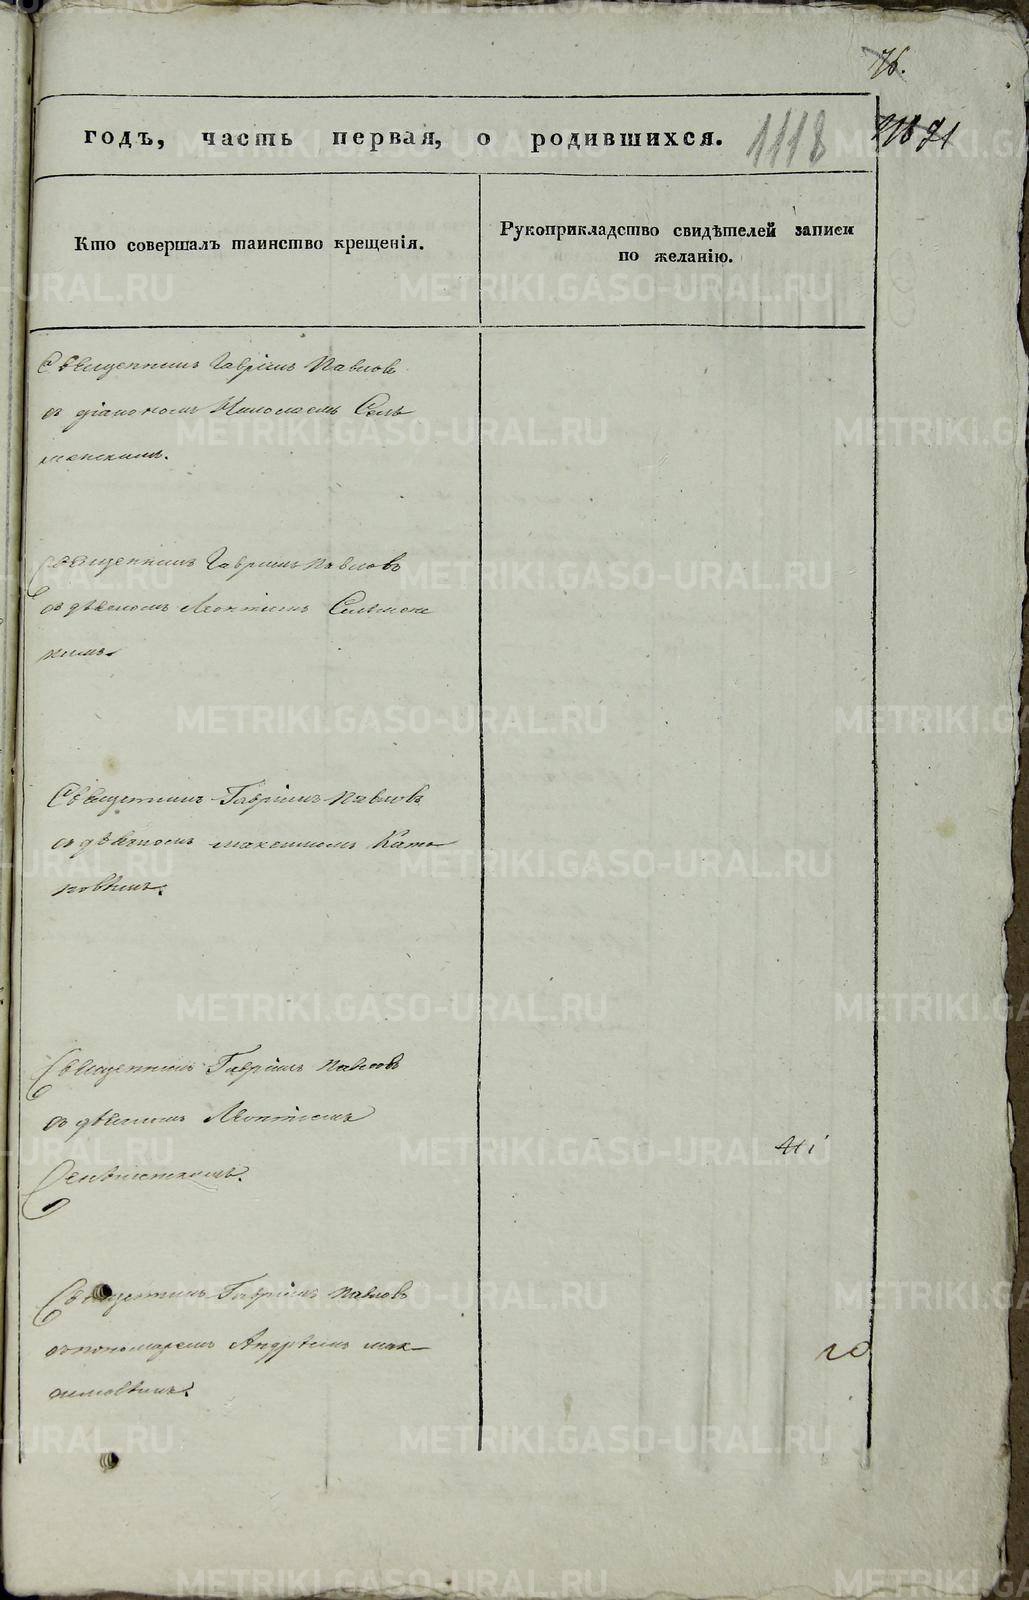 годъ, часть первая, о родившихся. 1118
Кто совершалъ таинство крещенія.
Рукоприкладство свидѣтелей записи
по желанію.
Священникъ Гавріилъ Павловъ
съ діакономъ Николаемъ
Священникъ Гавріилъ Павловъ
съ дьякономъ Леонтіемъ
Священникъ Гавріилъ Павловъ
съ дьякономъ Максимомъ
Священникъ Гавріилъ Павловъ
съ дьякономъ Леонтіемъ
Священникъ Гавріилъ Павловъ
съ пономаремъ Андреемъ Мак-
симовымъ.
METRIKI.GASO-URAL.RU